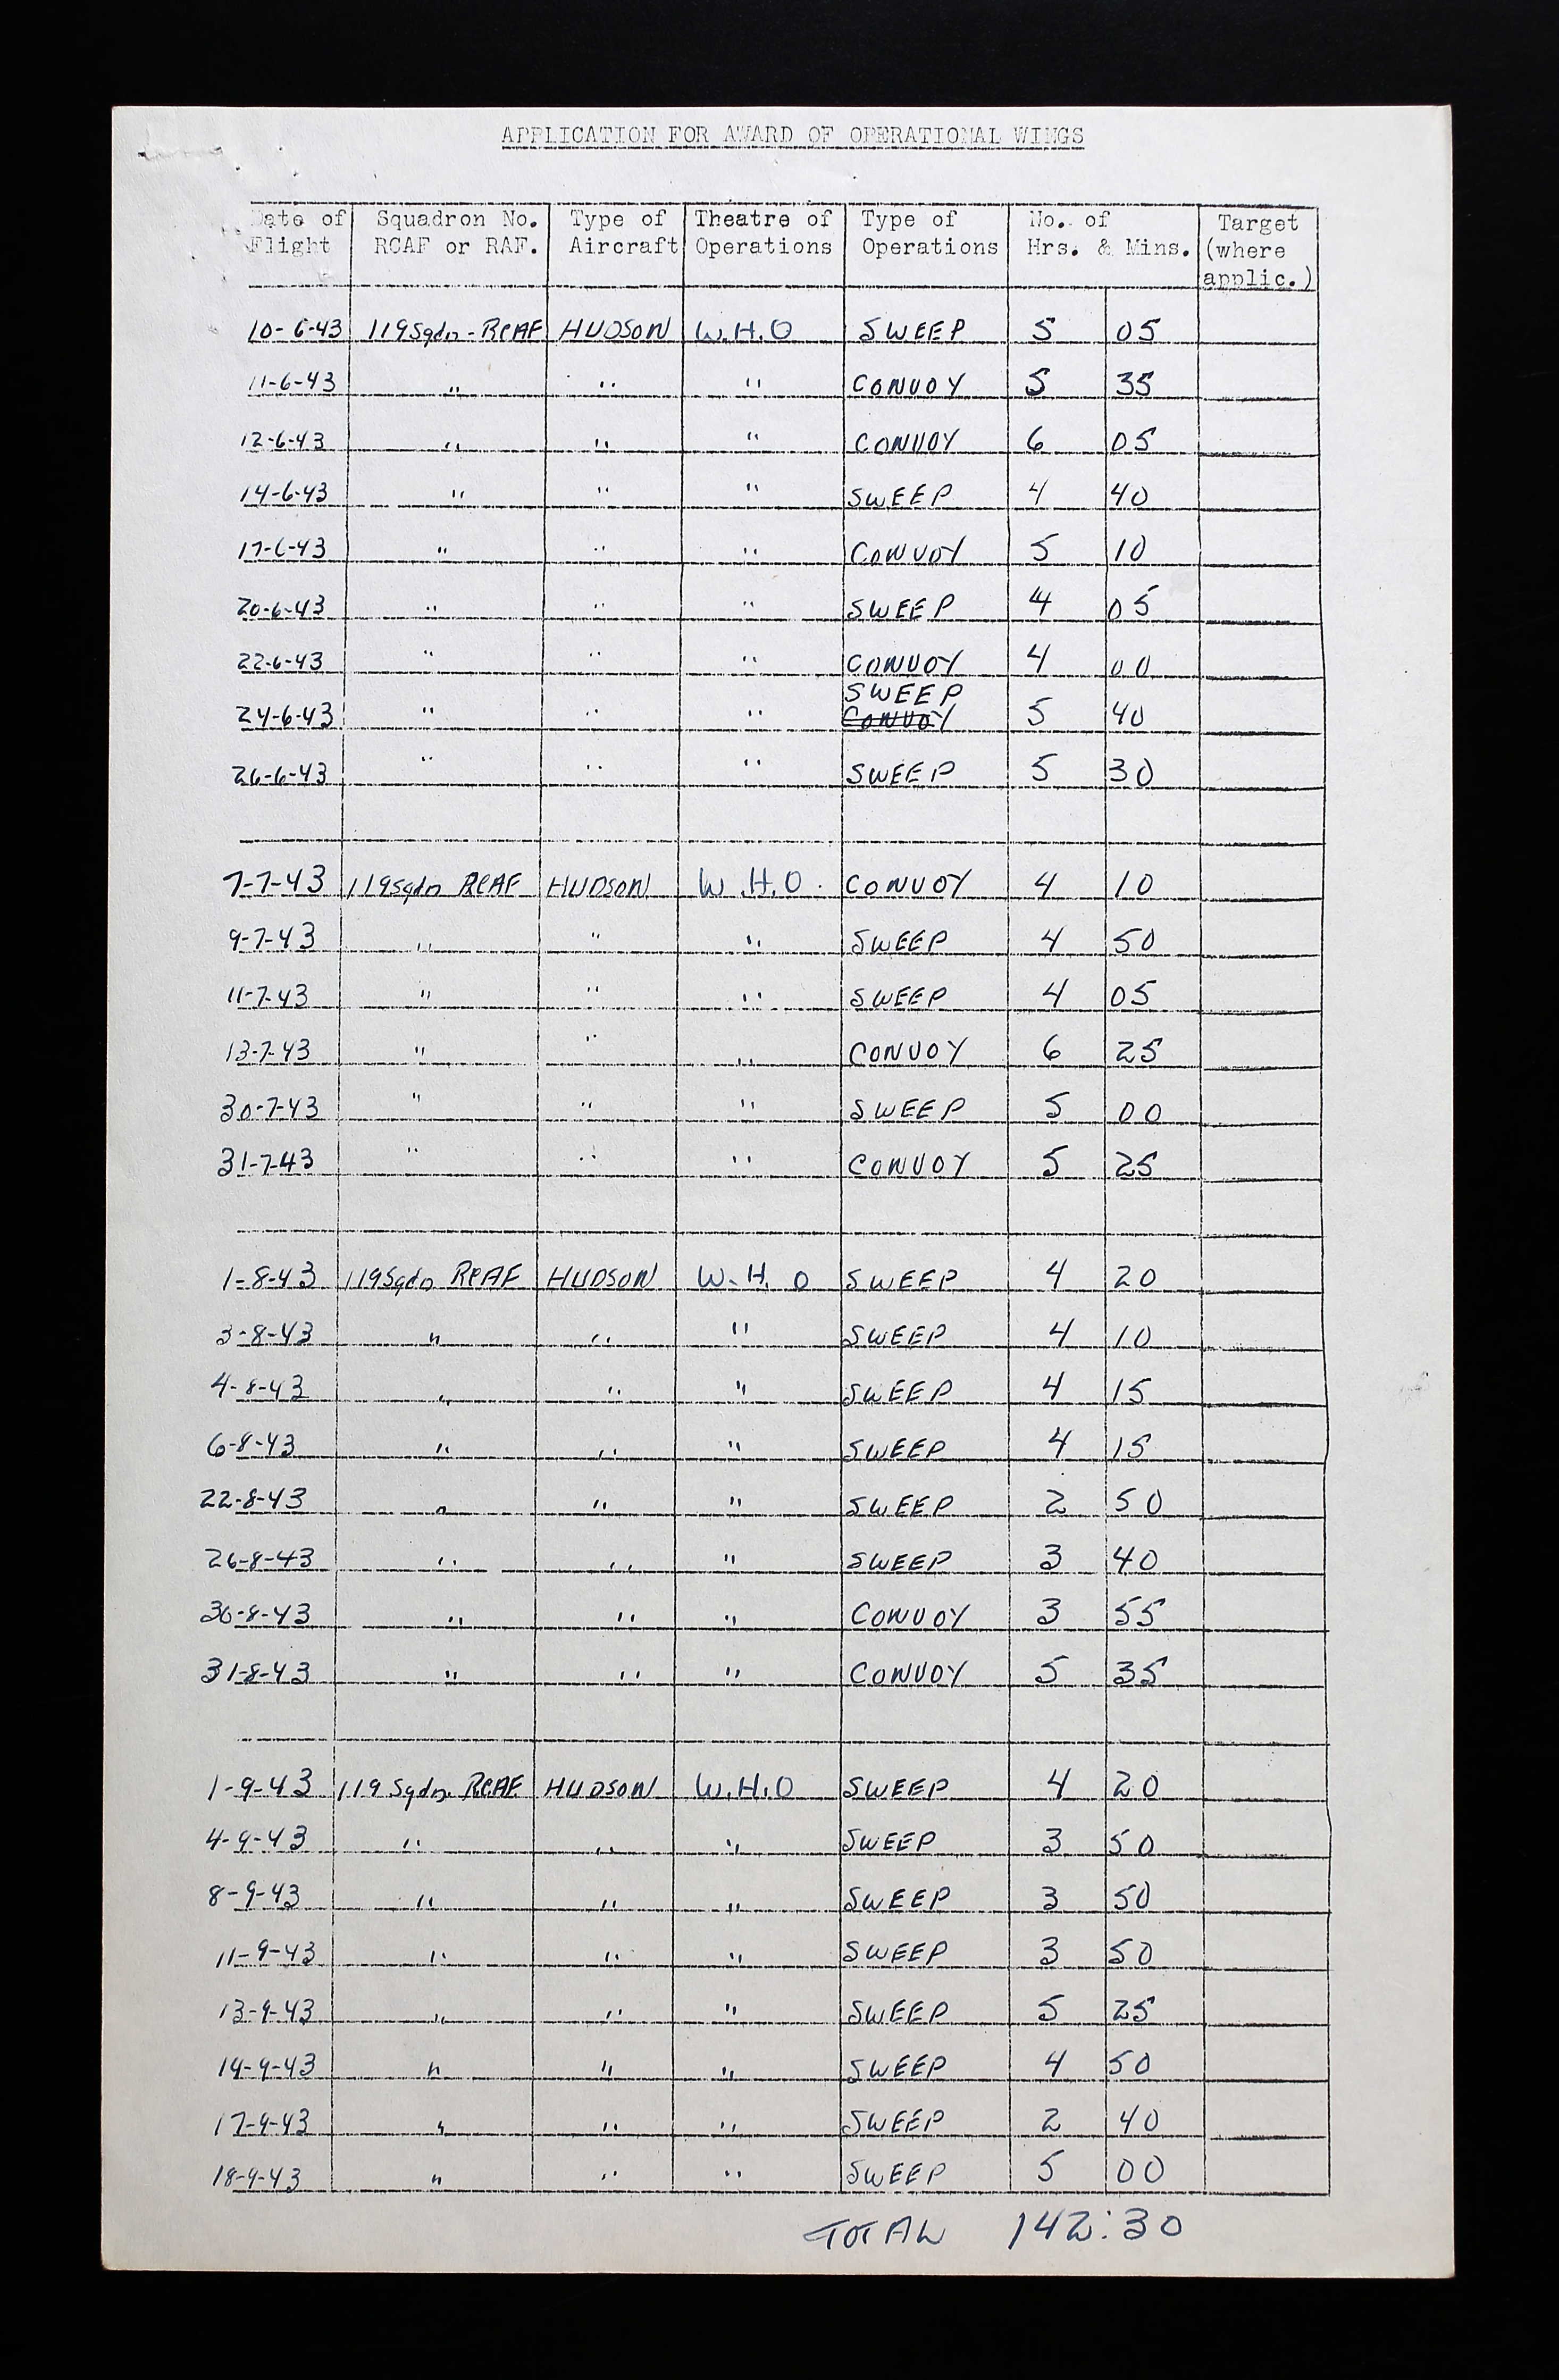 APPLICATION FOR AWARD OF OPERATIONAL WINGS
Date of Flight Squadron No. RCAF or RAF. Type of Aircraft Theatre of Operations Type of Operations No. of Hrs. & Mins. Target (where applic.)
10-6-43 119 Sqdn - RCAF HUDSON W.H.O SWEEP 5 05
11-6-43 " " " CONVOY 5 35
12-6-43 " " " CONVOY 6 05
14-6-43 " " " SWEEP 4 40
17-6-43 " " " CONVOY 5 10
20-6-43 " " " SWEEP 4 05
22-6-43 " " " CONVOY 4 00
24-6-43 " " " SWEEP CONVOY 5 40
26-6-43 " " " SWEEP 5 30
7-7-43 119 Sqdn RCAF HUDSON W.H.O. CONVOY 4 10
9-7-43 " " " SWEEP 4 50
11-7-43 " " " SWEEP 4 05
13-7-43 " " " CONVOY 6 25
30-7-43 " " " SWEEP 5 00
31-7-43 " " " CONVOY 5 25
1-8-43 119 Sqdn RCAF HUDSON W.H.O SWEEP 4 20
3-8-43 " " " SWEEP 4 10
4-8-43 " " " SWEEP 4 15
6-8-43 " " " SWEEP 4 15
22-8-43 " " " SWEEP 2 50
26-8-43 " " " SWEEP 3 40
30-8-43 " " " CONVOY 3 55
31-8-43 " " " CONVOY 5 35
1-9-43 119 Sqdn. RCAF HUDSON W.H.O SWEEP 4 20
4-9-43 " " " SWEEP 3 50
8-9-43 " " " SWEEP 3 50
11-9-43 " " " SWEEP 3 50
13-9-43 " " " SWEEP 5 25
14-9-43 " " " SWEEP 4 50
17-9-43 " " " SWEEP 2 40
18-9-43 " " " SWEEP 5 00
TOTAL 142:30